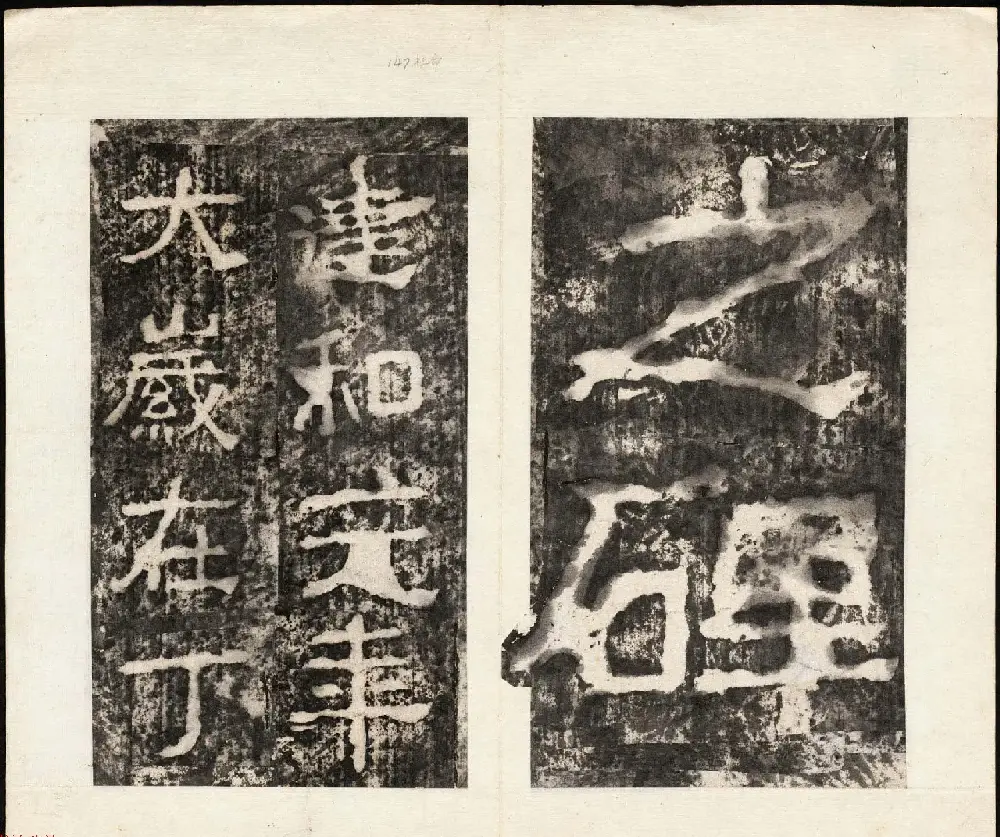 之碑
建和元年
大歲在丁